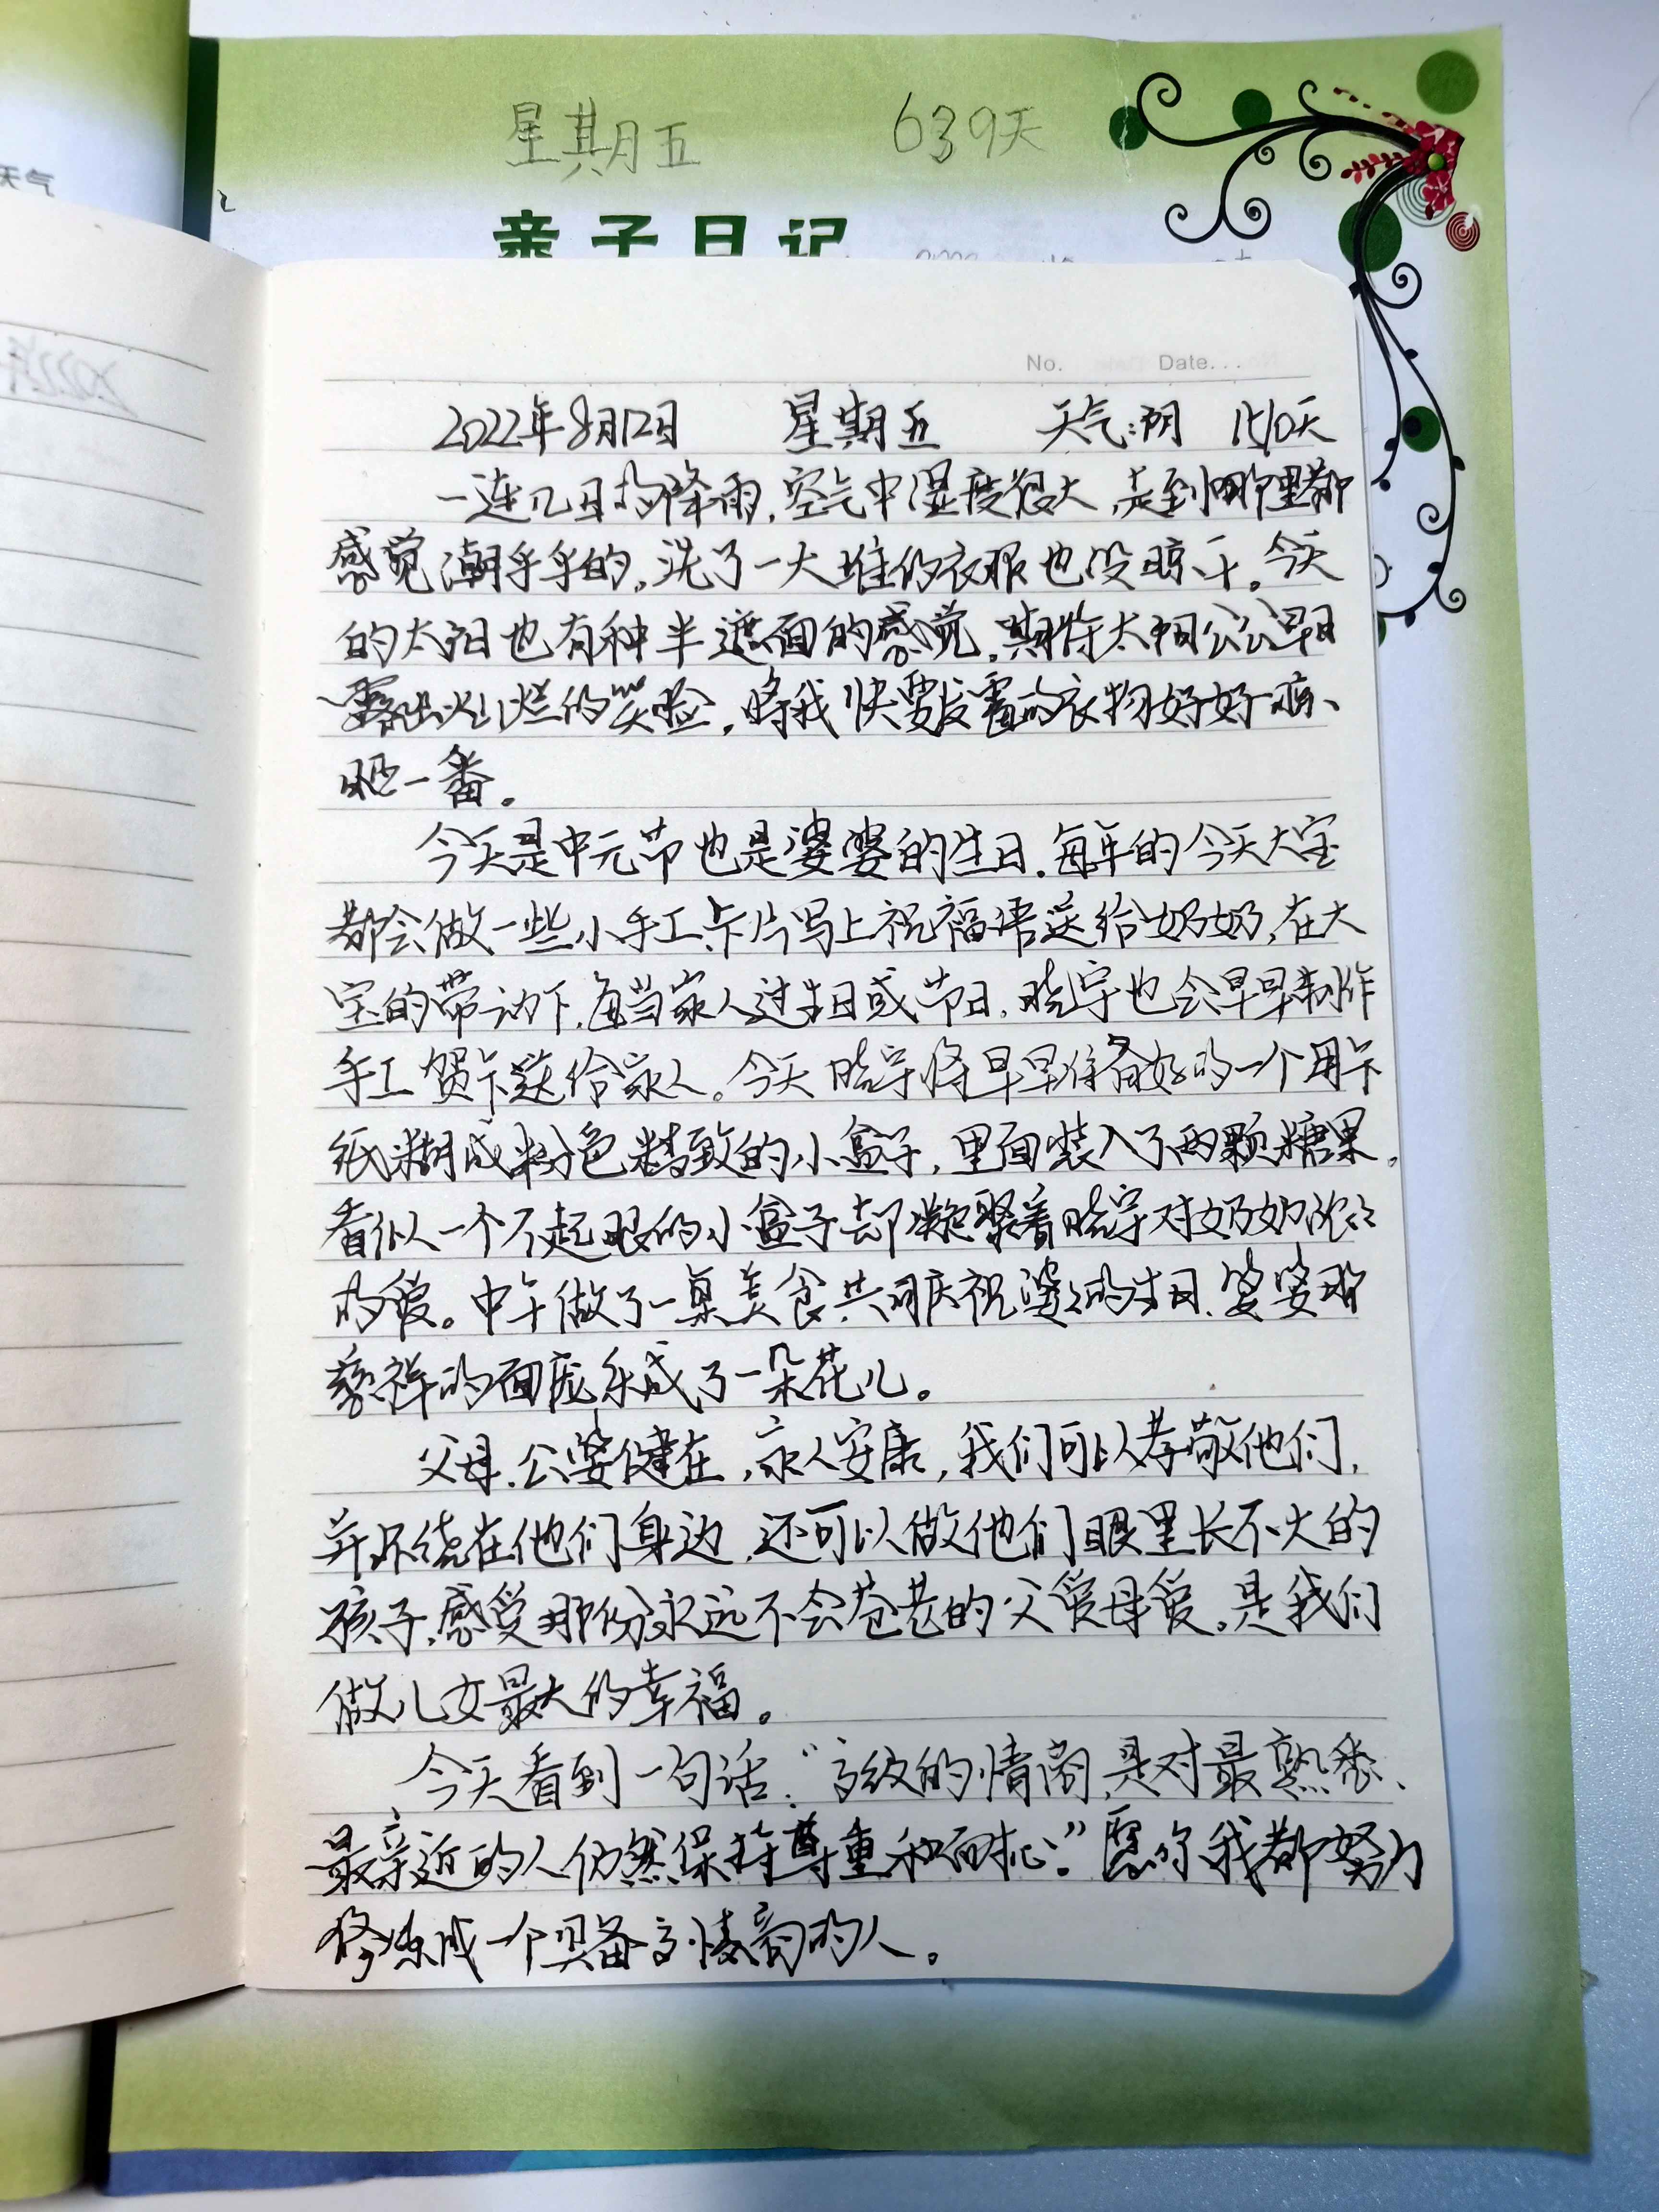 天气
星期五 639天
亲子日记
No. Date...
2022年8月12日 星期五 天气:阴 天
一连几日的降雨,空气中湿度很大,走到哪里都
感觉潮乎乎的,洗了一大堆的衣服也没晾干。今天
的太阳也有种半遮面的感觉,期待太阳公公早日
露出灿烂的笑脸,将我快要发霉的衣物好好晾、
晒一番。
今天是中元节也是婆婆的生日,每年的今天大宝
都会做一些小手工,卡片写上祝福语送给奶奶,在大
宝的带动下,每当家人过生日或节日,晓宇也会早早制作
手工贺卡送给家人。今天晓宇将早早准备好的一个用卡
纸糊成粉色精致的小盒子,里面装入了两颗糖果,
看似一个不起眼的小盒子却凝聚着晓宇对奶奶浓浓
的爱。中午做了一桌美食共同庆祝婆婆的生日,婆婆那
慈祥的面庞乐成了一朵花儿。
父母、公婆健在,家人安康,我们可以孝敬他们,
并环绕在他们身边,还可以做他们眼里长不大的
孩子,感受那份永远不会苍老的父爱母爱,是我们
做儿女最大的幸福。
今天看到一句话:“高级的情商,是对最熟悉、
最亲近的人仍然保持尊重和耐心。”愿你我都努力
修炼成一个具备高情商的人。